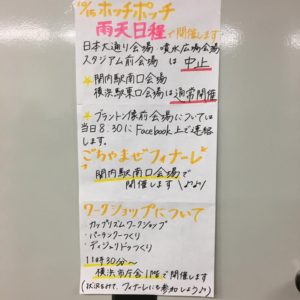 10/15 ホッチポッチ
雨天日程で開催します
日本大通り会場・噴水広場会場
スタジアム前会場 は 中止
★関内駅南口会場
横浜駅東口会場は通常開催
★ブラントン像前会場については
当日8:30にFacebook上で連絡
します。
ごちゃまぜフィナーレ
関内駅南口会場で
開催します
ワークショップについて
・カップリズムワークショップ
・パーランクーつくり
・ディジュリドゥつくり
11時30分〜
横浜市庁舎1階で開催します
(状況をみて、フィナーレにも参加しよう♪)